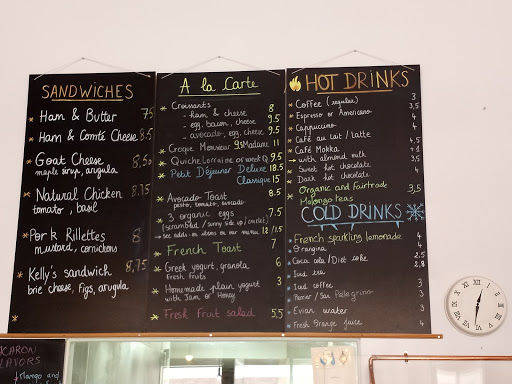 SANDWICHES
Ham & Butter 7.5
Ham & Comté Cheese 8.5
Goat Cheese 8,50
maple sirup, arugula
Natural Chicken 8.75
tomato, basil
Pork Rillettes 8
mustard, cornichons
Kelly's sandwich 8,75
brie cheese, figs, arugula
A la Carte
Croissants
- ham & cheese 8
- egg, bacon, cheese 9.5
- avocado, egg, cheese 9.5
Croque Monsieur 9.5 Madame 11
Quiche Lorraine or week Q 9.5
Petit Déjeuner Deluxe 18.5
Classique 15
Avocado Toast 8.5
pesto, tomato, avocado
3 organic eggs 7.5
(scrambled / sunny side up / omelet)
→ see adds-on items on our menu 12/1.5
French Toast 7
Greek yogurt, granola 6
Fresh fruits
Homemade plain yogurt 3
with Jam or Honey
Fresh Fruit salad 5,5
HOT DRINKS
Coffee (regular) 3
Espresso or Americano 3,5
Cappuccino 4
Café au lait / Latte
Café Mokka 4,5
→ with almond milk
Sweet hot chocolate 3,5
Dark hot chocolate 4
Organic and Fairtrade 3,5
Malongo teas
COLD DRINKS
French sparkling lemonade 4
Orangina 4
Coca cola / Diet coke 2.5
Iced tea 2,8
Iced coffee 3
Perrier / San Pelegrino 3
Evian water 3
Fresh Orange juice 4
CARON
LAVORS